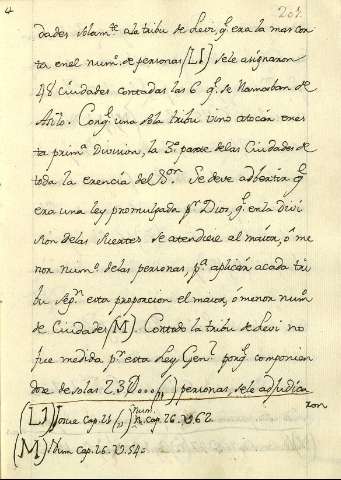 4
201
dades solam.te ala tribu de Levi, q.e era la mas cor
ta en el num.o de personas (LI) se le asignaron
48 ciudades contadas las 6 q.e se llamaban de
Asilo. Conq.e una sola tribu vino atocàr en es
ta prim.a Division, la 3.a parte de las Ciudades de
toda la erencia del S.or Se deve adbertir q.e
era una ley promulgada p.r Dios, q.e en la divi
sion de las suertes se atendiese al maior, ó me
nor num.o de las personas, p.a aplicàr acada tri
bu seg.n esta proporcion el maior, ó menor num.o
de Ciudades (M). Contodo la tribu de Levi no
fue medida p.r esta Ley Gen.l porq.e componien
dose de solas 23000 personas, se le adjudica
ron
(LI) Josue Cap. 21 num. cap. 26. V. 62
(M) Num Cap. 26. V. 54